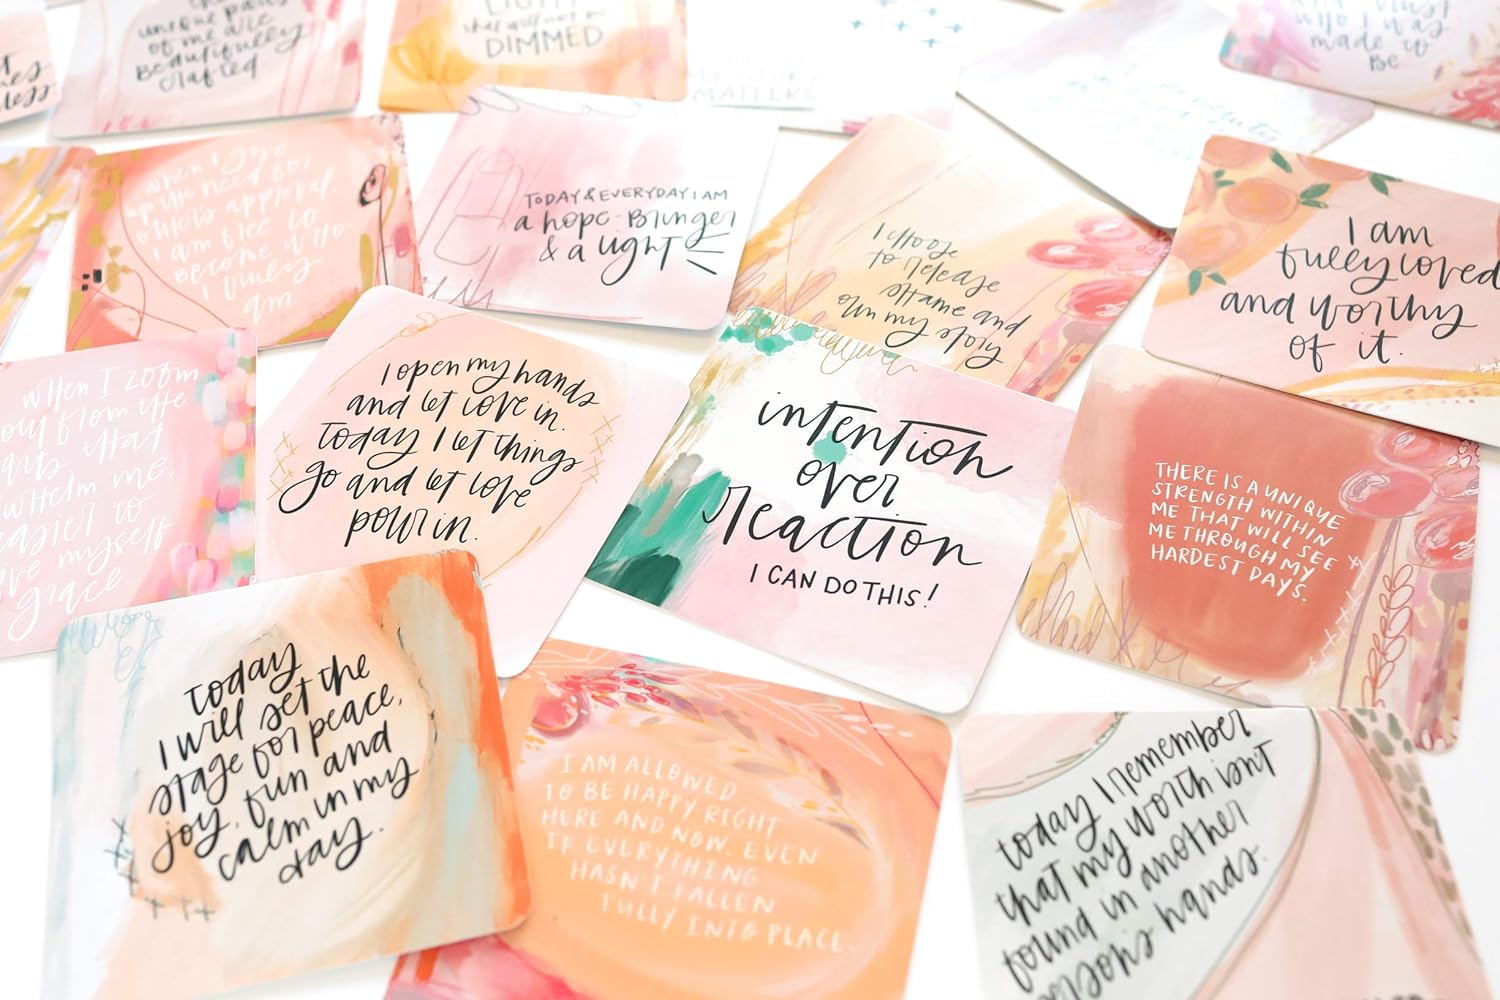 unique parts
of me are
beautifully
crafted
LIGHT
that will not be
DIMMED
MY STORY
MATTERS
who I was
made to
Be
when I give
up the need for
others approval,
I am free to
become who
I truly
am
TODAY & EVERYDAY I AM
a hope-Bringer
& a light
I choose
to release
shame and
own my story
I am
fully loved
and worthy
of it.
when I zoom
out from the
that
me,
easier to
myself
grace.
I open my hands
and let love in.
Today I let things
go and let love
pour in.
intention
over
reaction
I CAN DO THIS!
THERE IS A UNIQUE
STRENGTH WITHIN
ME THAT WILL SEE
ME THROUGH MY
HARDEST DAYS.
today
I will set the
stage for peace,
joy, fun and
calm in my
day.
I AM ALLOWED
TO BE HAPPY RIGHT
HERE AND NOW, EVEN
IF EVERYTHING
HASN'T FALLEN
FULLY INTO PLACE.
today I remember
that my worth isn't
found in another
persons hands.